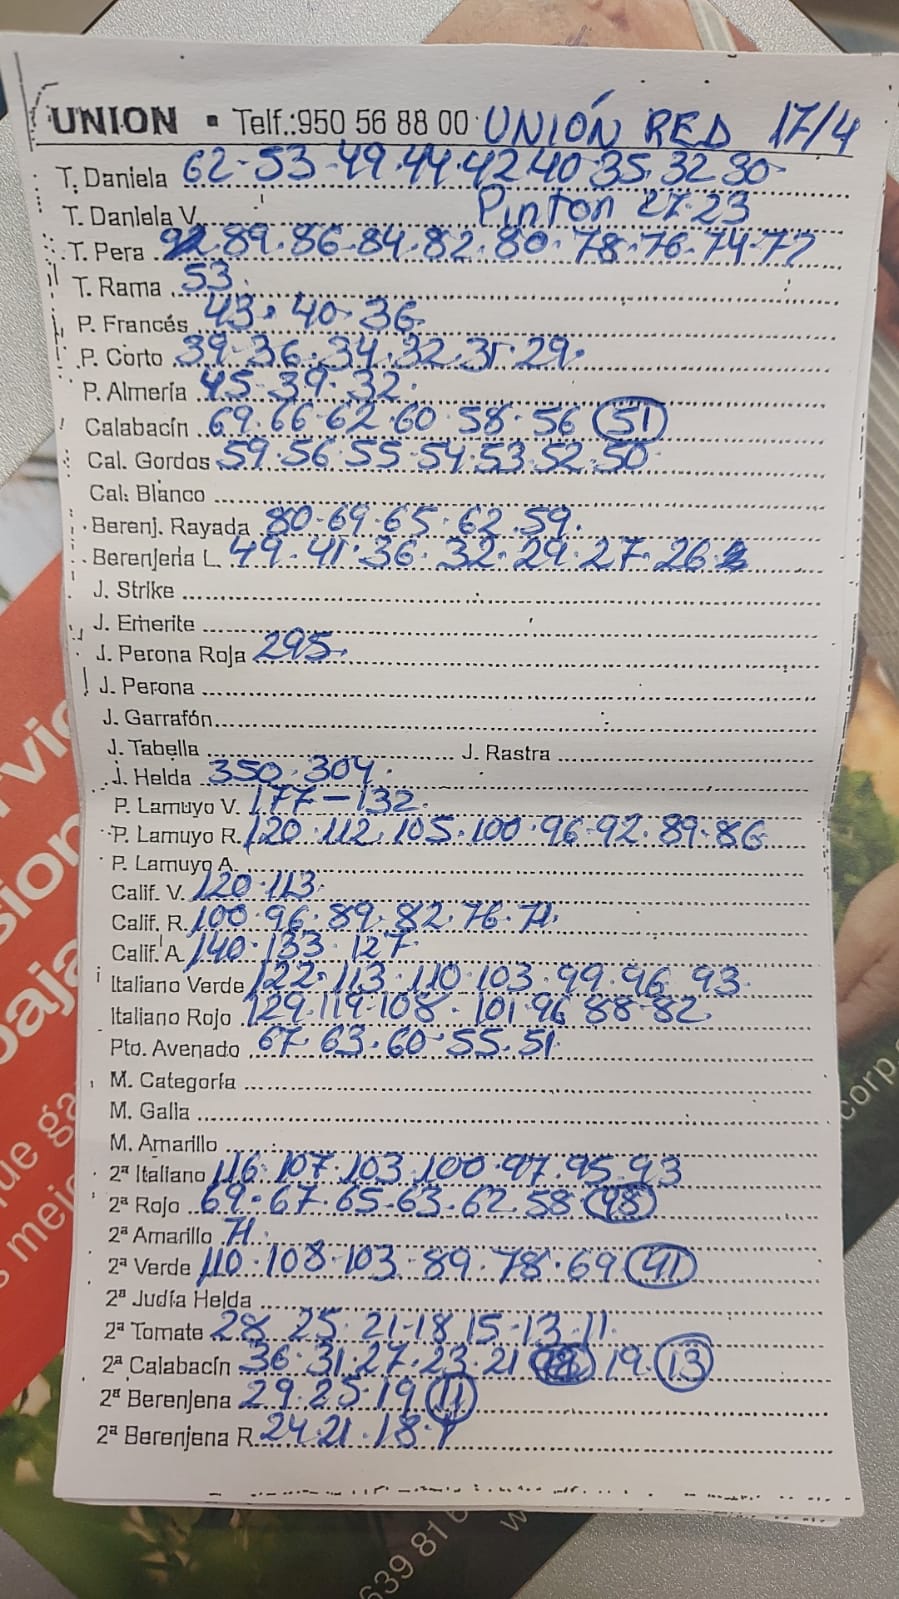 UNION ▪ Telf.:950 56 88 00 UNIÓN RED 17/4
T. Daniela 62-53-49.44.42.40.35.32.30
T. Daniela V. Pinton 27.23
T. Pera 89.86-84.82.80.78.76.74-72
T. Rama 53.
P. Francés 43.40.36
P. Corto 39.36.34.32.31.29.
P. Almería 45.39.32.
Calabacín 69.66.62.60.58.56 51
Cal. Gordos 59.56.55-54.53.52.50
Cal. Blanco
Berenj. Rayada 80-69.65.62.59.
Berenjena L. 49.41.36.32.29.27.26
J. Strike
J. Emerite
J. Perona Roja 295.
J. Perona
J. Garrafón
J. Tabella J. Rastra
J. Helda 350.304.
P. Lamuyo V. 177-132.
P. Lamuyo R. 120.112.105.100.96-92.89.86
P. Lamuyo A.
Calif. V. 120.113.
Calif. R. 100.96.89.82.76.71.
Calif. A. 140.133.127
Italiano Verde 122.113.110.103.99.96.93.
Italiano Rojo 129.119.108.101.96 88-82.
Pto. Avenado 67.63.60-55.51.
M. Categoría
M. Galia
M. Amarillo
2ª Italiano 116.107.103.100.97.95.93
2ª Rojo 69.67.65.63.62.58 48
2ª Amarillo 71.
2ª Verde 110.108-103.89.78.69 41
2ª Judía Helda
2ª Tomate 28 25.21-18 15-13.11.
2ª Calabacín 36.31.27.23.21 19. 13
2ª Berenjena 29.25.19 11
2ª Berenjena R. 24.21.18.
639 81 6